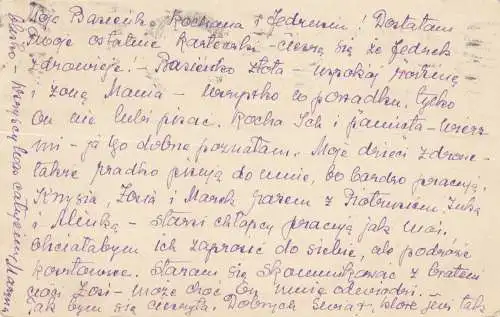 Moje Basieńko Kochana i Jędrusiu! Dostałam
Twoje ostatnie karteczki - cieszę się że Jędrek
zdrowieje! - Basieńko złota - uspokój rodzinę
i żonę Mania - wszystko w porządku, tylko
on nie lubi pisać. Kocha Ich i pamięta - wierz
mi - ja go dobrze poznałam. Moje dzieci zdrowe -
także rzadko piszą do mnie, bo bardzo pracują.
Krysia, Zosia i Marek razem z Piotrusiem, Lulą
i Alinką - starsi chłopcy pracują jak moi.
chciałabym Ich zaprosić do siebie, ale podróże
kosztowne. Staram się skomunikować z bratem
Zosi - może choć On mnie odwiedzi.
Jak bym się cieszyła. Dobrych Świąt, które już tak
blisko - Wszyscy Was całujemy Mama